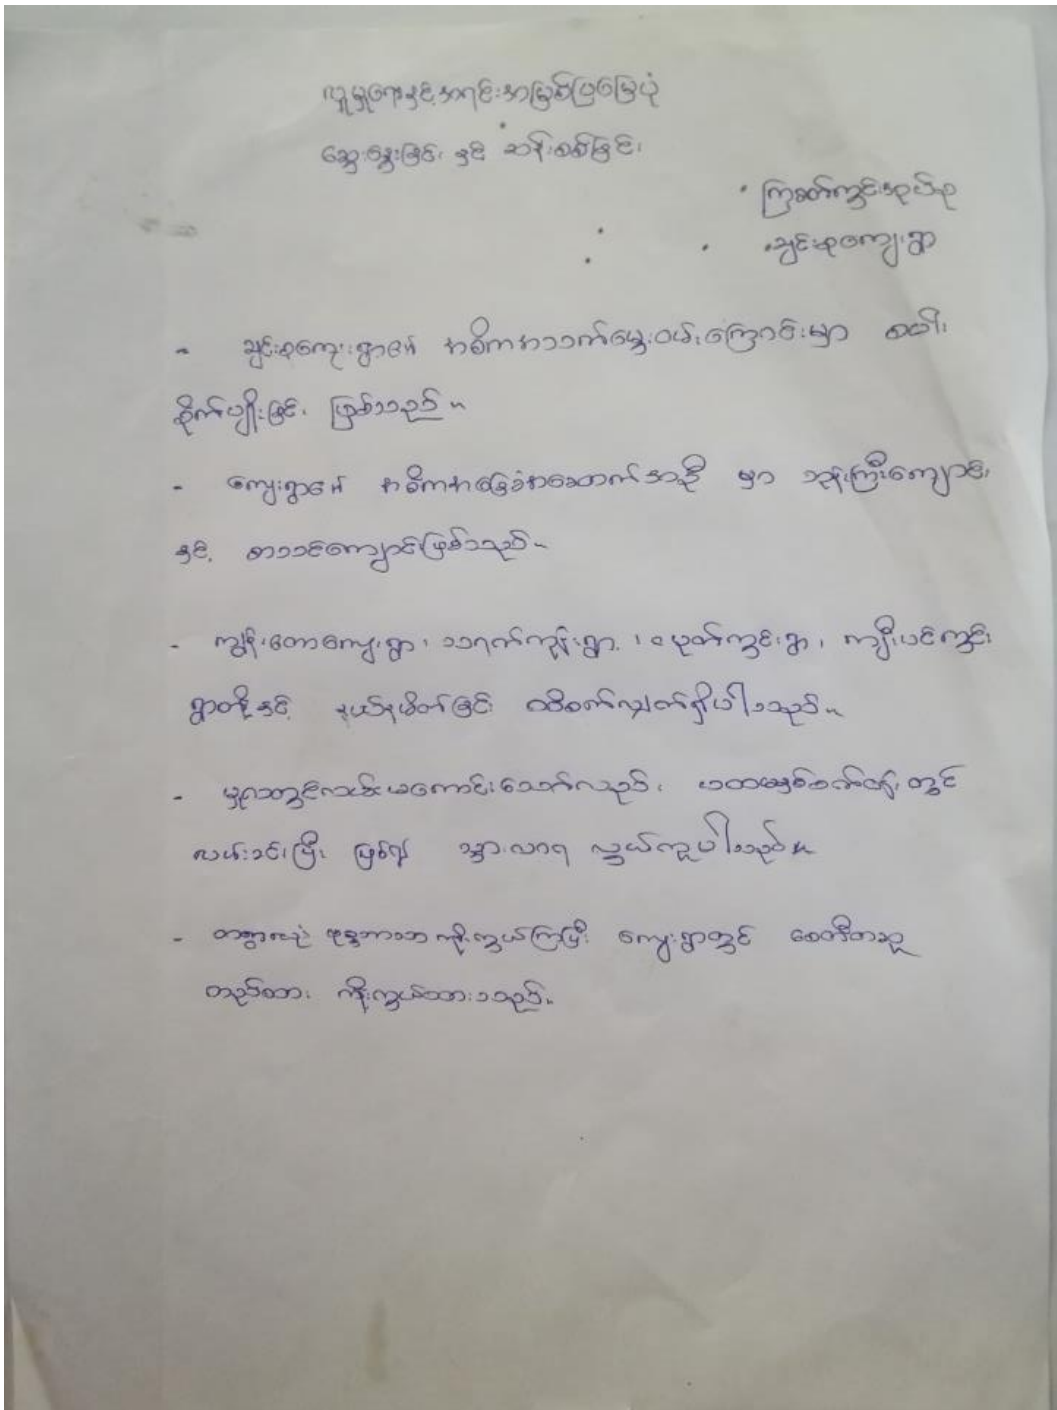 လူမှုရေးနှင့်အရင်းအမြစ်ပြမြေပုံ
ဆွေးနွေးခြင်း နှင့် ဆန်းစစ်ခြင်း
ကြခတ်ကွင်းအုပ်စု
ချင်းစုကျေးရွာ
- ချင်းစုကျေးရွာ၏ အဓိကအသက်မွေးဝမ်းကြောင်းမှာ စပါး
စိုက်ပျိုးခြင်း ဖြစ်သည်။
- ကျေးရွာ၏ အဓိကအခြေခံအဆောက်အဦ မှာ ဘုန်းကြီးကျောင်း
နှင့် စာသင်ကျောင်းဖြစ်သည်။
- ကျွန်းတောကျေးရွာ၊ သရက်ကုန်းရွာ၊ ပုတ်ကွင်းရွာ၊ ကျီးပင်ကွင်း
ရွာတို့နှင့် နယ်နမိတ်ခြင်း ထိစပ်လျှက်ရှိပါသည်။
- မူလတွင်လမ်းမကောင်းသော်လည်း ပထမနှစ်စက်ဝန်းတွင်
လမ်းခင်းပြီး ဖြစ်၍ သွားလာရ လွယ်ကူပါသည်။
- တစ်ရွာလုံး ဗုဒ္ဓဘာသာ ကိုးကွယ်ကြပြီး ကျေးရွာတွင် စေတီတဆူ
တည်ထား ကိုးကွယ်ထားသည်။